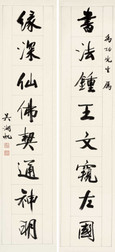 為伯先生屬
書法鍾王文窺左國
緣深仙佛契通神明
吳湖帆